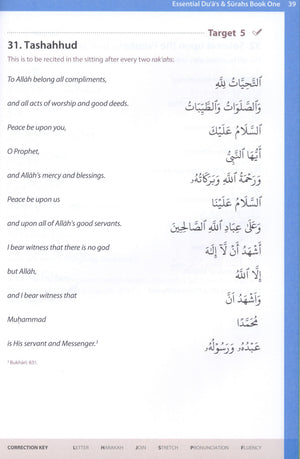 Essential Du'ā's & Sūrahs Book One 39
Target 5
31. Tashahhud
This is to be recited in the sitting after every two rak'ahs:
To Allāh belong all compliments,
اَلتَّحِيَّاتُ لِلّٰهِ
and all acts of worship and good deeds.
وَالصَّلَوَاتُ وَالطَّيِّبَاتُ
Peace be upon you,
اَلسَّلَامُ عَلَيْكَ
O Prophet,
أَيُّهَا النَّبِيُّ
and Allāh's mercy and blessings.
وَرَحْمَةُ اللّٰهِ وَبَرَكَاتُهُ
Peace be upon us
اَلسَّلَامُ عَلَيْنَا
and upon all of Allāh's good servants.
وَعَلَىٰ عِبَادِ اللّٰهِ الصَّالِحِيْنَ
I bear witness that there is no god
أَشْهَدُ أَنْ لَّا إِلٰهَ
but Allāh,
إِلَّا اللّٰهُ
and I bear witness that
وَأَشْهَدُ أَنَّ
Muḥammad
مُحَمَّدًا
is His servant and Messenger.¹
عَبْدُهُ وَرَسُوْلُهُ
¹ Bukhārī: 831.
CORRECTION KEY LETTER HARAKAH JOIN STRETCH PRONUNCIATION FLUENCY